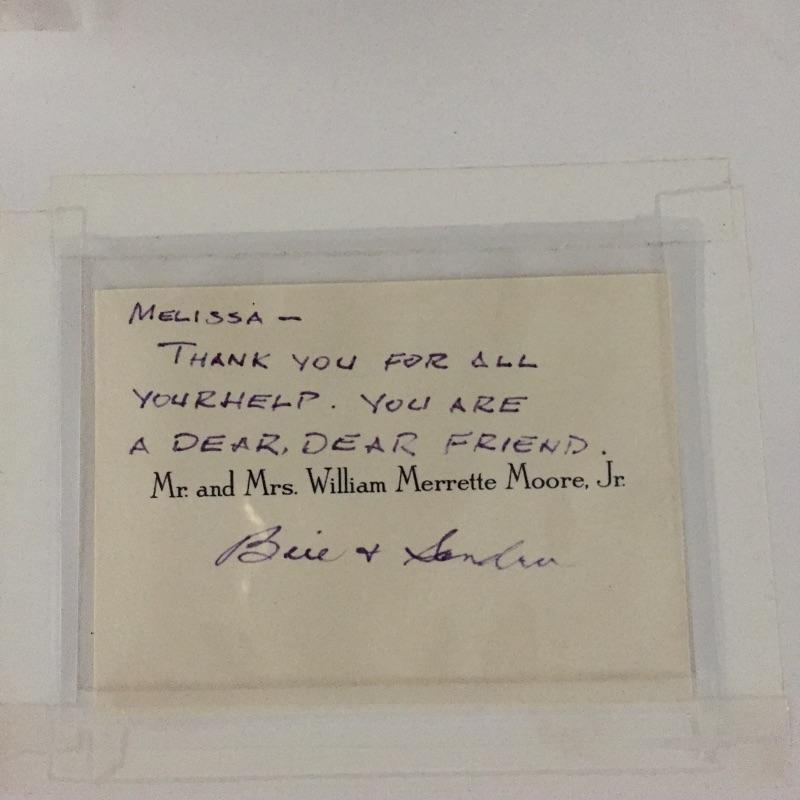 MELISSA —
THANK YOU FOR ALL
YOUR HELP. YOU ARE
A DEAR, DEAR FRIEND.
Mr. and Mrs. William Merrette Moore, Jr.
Bill + Sandra